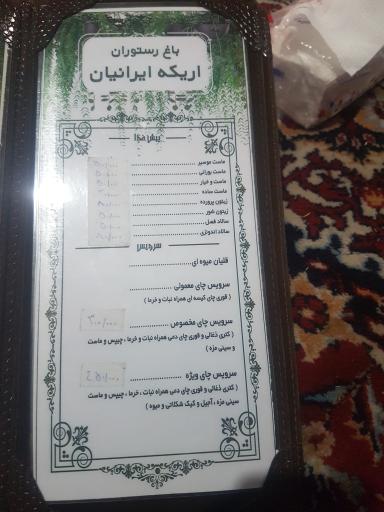 باغ رستوران
اریکه ایرانیان
پیش غذا
ماست موسیر
ماست بورانی
ماست و خیار
ماست ساده
زیتون پرورده
زیتون شور
سالاد فصل
سالاد اندونزی
سرویس
قلیان میوه ای
سرویس چای معمولی
( قوری چای کیسه ای همراه نبات و خرما )
سرویس چای مخصوص
( کتری ذغالی و قوری چای دمی همراه نبات ، خرما ، چیپس و ماست
و سینی مزه )
سرویس چای ویژه
( کتری ذغالی و قوری چای دمی همراه نبات ، خرما ، چیپس و ماست
سینی مزه ، آجیل و کیک شکلاتی و میوه )